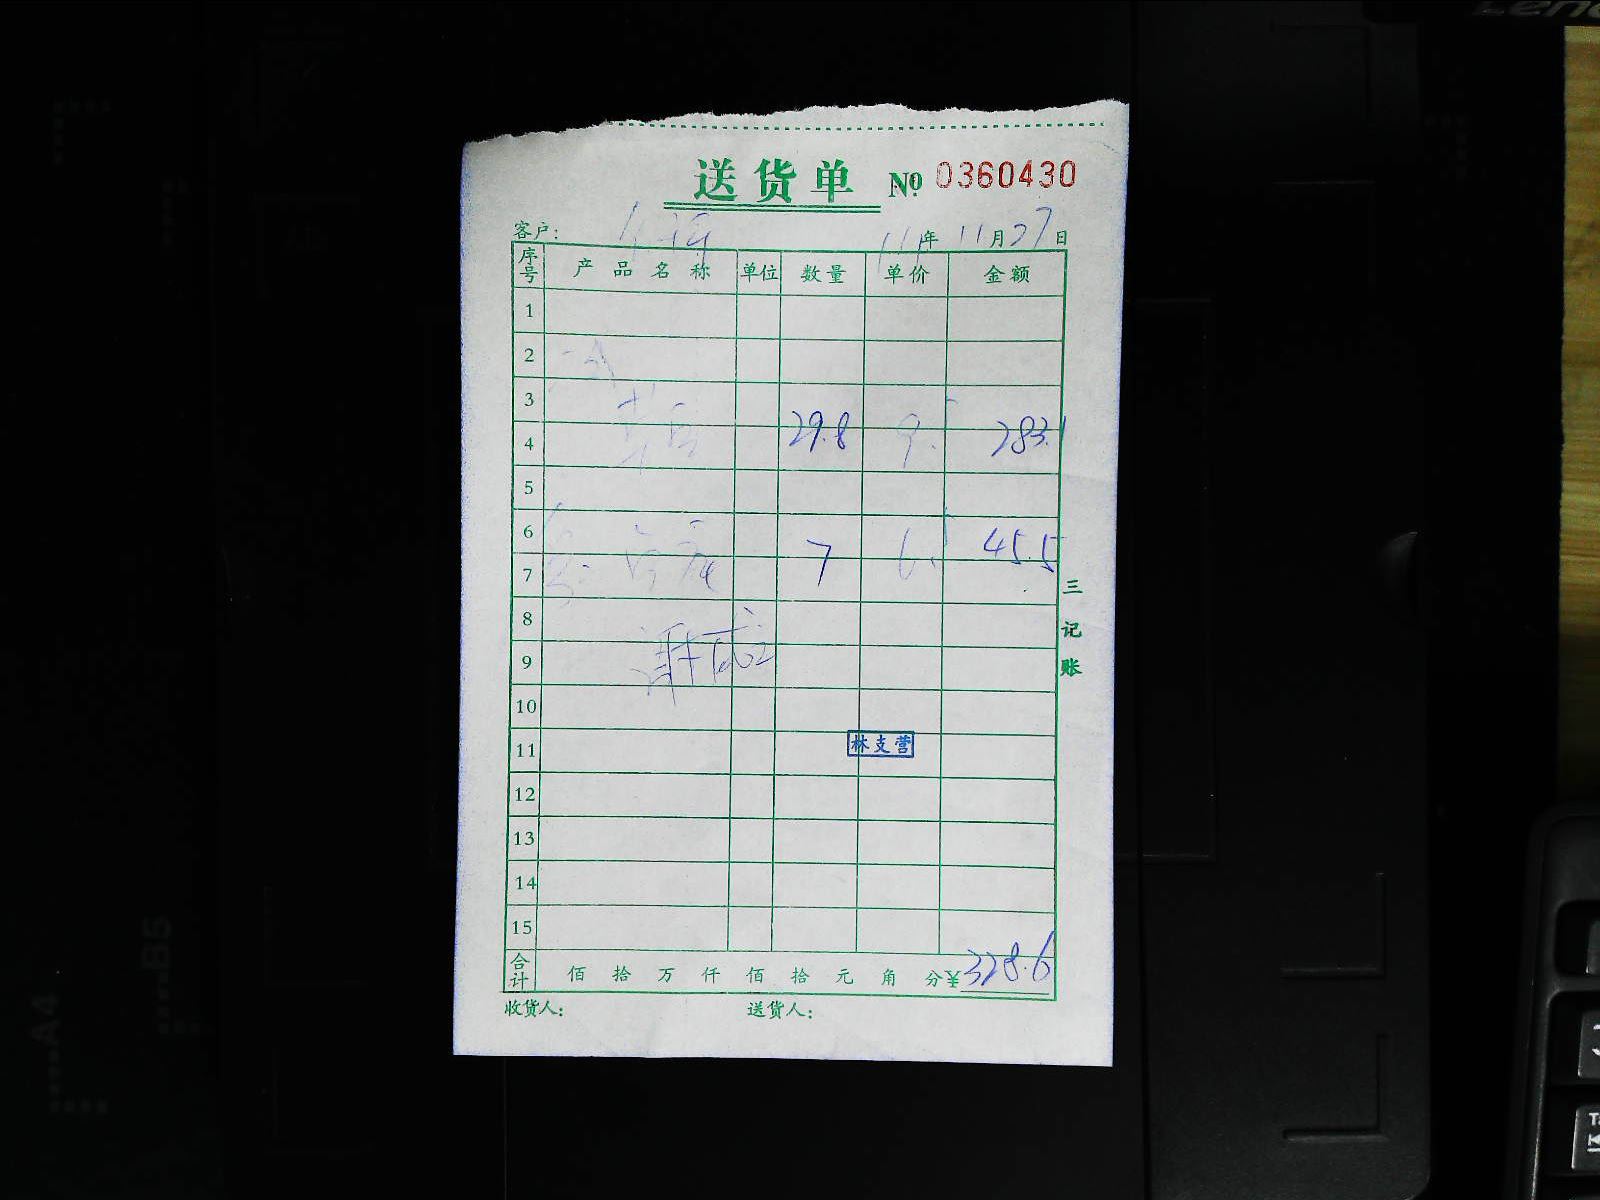 送货单 № 0360430
客户: 年 11月27日
序号 产品名称 单位 数量 单价 金额
1
2
3
4 29.8 9.5 283.1
5
6
7 7 6.5 45.5
8
9
10
11 林支营
12
13
14
15
合计 佰 拾 万 仟 佰 拾 元 角 分¥328.6
收货人: 送货人:
三记账
A4
B5